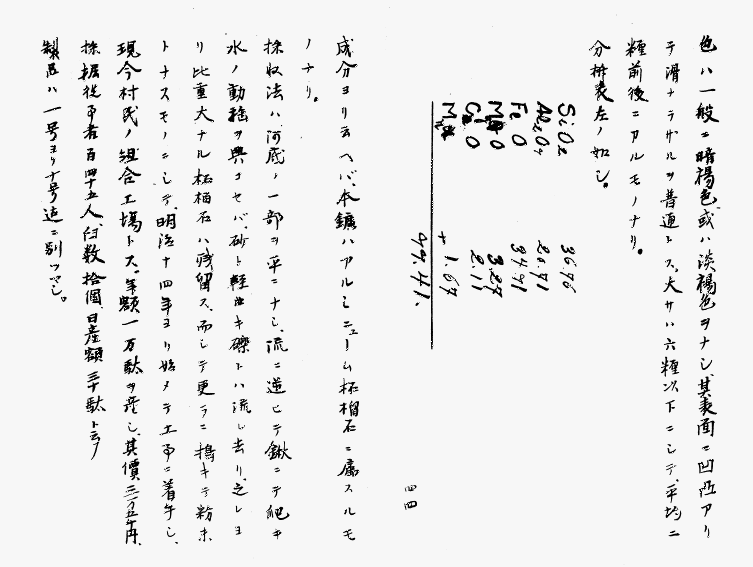 色ハ一般ニ暗褐色或ハ淡褐色ヲナシ、其表面ニ凹凸アリ
テ滑ナラザルヲ普通トス。大サハ六糎以下ニシテ、平均ニ
糎前後ニアルモノナリ。
分析表左ノ如シ。
SiO2 36.76
Al2O3
FeO
MgO 3.27
CaO 2.11
+ 1.67
成分ヨリ云ヘバ、本鑛ハアルミニューム柘榴石ニ屬スルモ
ノナリ。
採収法ハ河底ノ一部ヲ平ニナシ、流ニ逆ヒテ鍬ニテ爬キ
水ノ動揺ヲ與フセバ、砂ト軽キ礫トハ流レ去リ、之レヨ
リ比重大ナル柘榴石ハ残留ス、而シテ更ラニ搗キテ粉末
トナスモノニシテ、明治十四年ヨリ始メテ工事ニ着手シ、
現今村民ノ組合工場トス。年額一万駄ヲ産シ、其價三万五千円、
採掘従事者百四十五人、臼数拾個、日産額三十駄ト云フ
製品ハ一号ヨリ十号迠ニ別ツベシ。
四四